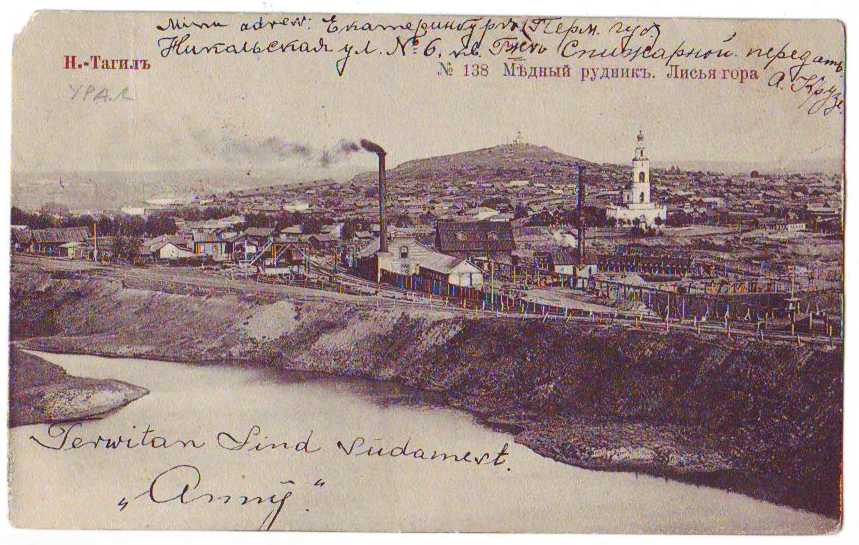 Minu adress: Екатеринбургъ (Перм. губ.)
Никольская ул. № 6, кв. Спижарной. передать
А. Крузе.
Н.-Тагилъ
№ 138 Мѣдный рудникъ. Лисья гора
УРАЛ
Terwitan Sind südamest.
„Anny".